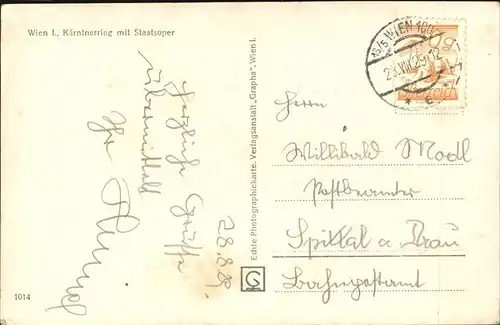 Wien I., Kärntnerring mit Staatsoper
28.8.29.
Herzliche Grüße
übermittelt
Ihr
1014
Echte Photographiekarte. Verlagsanstalt „Grapha“, Wien I.
G
Herrn
Willibald Modl
Postbeamter
Spittal a. Drau
Bahnpostamt
WIEN
28.VIII.29. 12
* E *